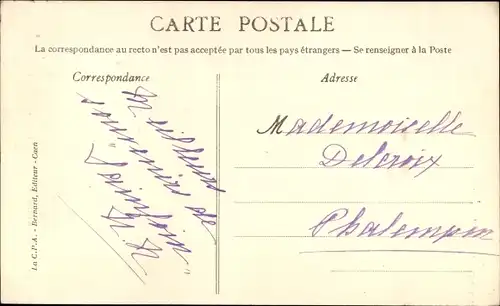 CARTE POSTALE
La correspondance au recto n'est pas acceptée par tous les pays étrangers — Se renseigner à la Poste
Correspondance
Adresse
Meilleurs
souvenirs de
Mademoiselle
Delcroix
Phalempin
La C.P.A. - Bernard, Editeur - Caen